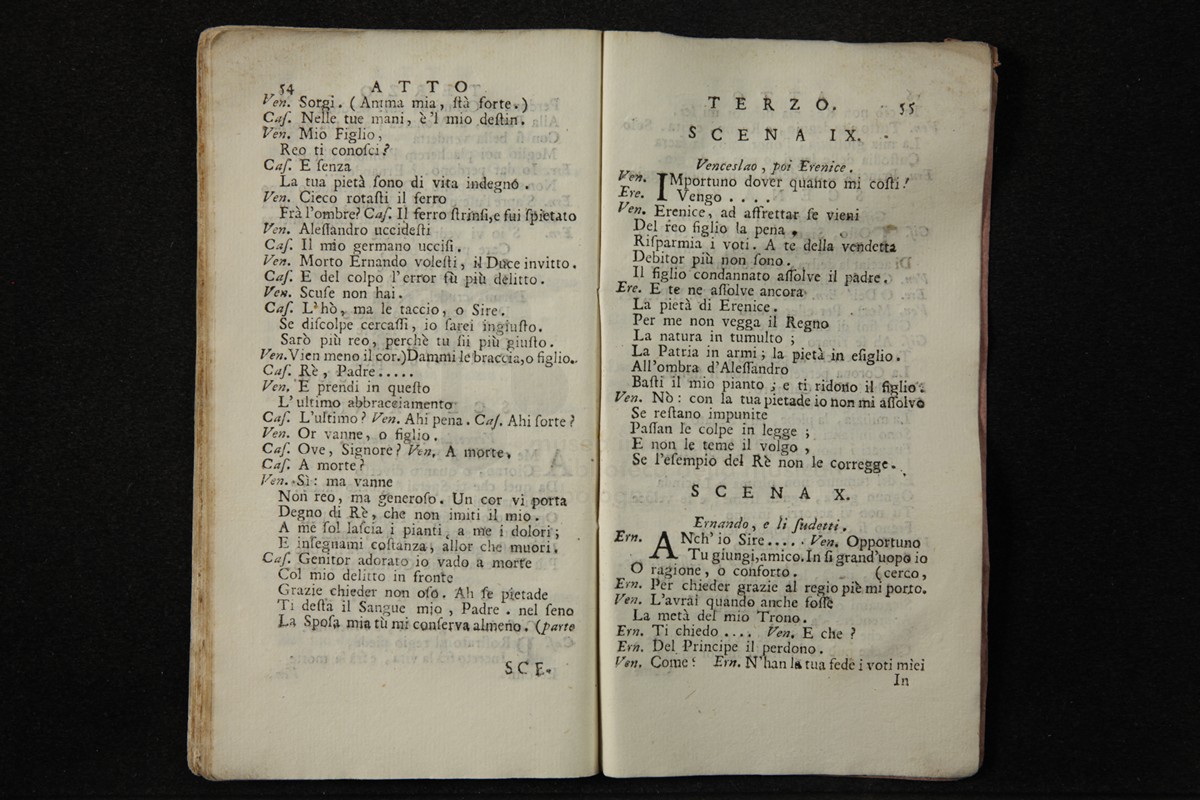 54 ATTO
Ven. Sorgi. ( Anima mia, ſtà forte. )
Caſ. Nelle tue mani, è 'l mio deſtin.
Ven. Mio Figlio,
Reo ti conoſci?
Caſ. E ſenza
La tua pietà ſono di vita indegno.
Ven. Cieco rotaſti il ferro
Frà l'ombre? Caſ. Il ferro ſtrinſi, e fui ſpietato
Ven. Aleſſandro uccideſti
Caſ. Il mio germano ucciſi.
Ven. Morto Ernando voleſti, il Duce invitto.
Caſ. E del colpo l'error fù più delitto.
Ven. Scuſe non hai.
Caſ. L'hò, ma le taccio, o Sire.
Se diſcolpe cercaſſi, io ſarei ingiuſto.
Sarò più reo, perchè tu ſii più giuſto.
Ven. Vien meno il cor.) Dammi le braccia, o figlio.
Caſ. Rè, Padre.....
Ven. E prendi in queſto
L'ultimo abbracciamento
Caſ. L'ultimo? Ven. Ahi pena. Caſ. Ahi ſorte?
Ven. Or vanne, o figlio.
Caſ. Ove, Signore? Ven. A morte.
Caſ. A morte?
Ven. Sì: ma vanne
Non reo, ma generoſo. Un cor vi porta
Degno di Rè, che non imiti il mio.
A me ſol laſcia i pianti, a me i dolori;
E inſegnami coſtanza, allor che muori.
Caſ. Genitor adorato io vado a morte
Col mio delitto in fronte
Grazie chieder non oſo. Ah ſe pietade
Ti deſta il Sangue mio, Padre. nel ſeno
La Spoſa mia tù mi conſerva almeno. (parte
SCE-
TERZO. 55
SCENA IX.
Venceslao, poi Erenice.
Ven. IMportuno dover quanto mi coſti!
Ere. Vengo ....
Ven. Erenice, ad affrettar ſe vieni
Del reo figlio la pena,
Riſparmia i voti. A te della vendetta
Debitor più non ſono.
Il figlio condannato aſſolve il padre.
Ere. E te ne aſſolve ancora
La pietà di Erenice.
Per me non vegga il Regno
La natura in tumulto;
La Patria in armi; la pietà in eſiglio.
All'ombra d'Aleſſandro
Baſti il mio pianto; e ti ridono il figlio.
Ven. Nò: con la tua pietade io non mi aſſolvo
Se reſtano impunite
Paſſan le colpe in legge;
E non le teme il volgo,
Se l'eſempio del Rè non le corregge.
SCENA X.
Ernando, e li ſudetti.
Ern. ANch' io Sire..... Ven. Opportuno
Tu giungi, amico. In ſi grand'uopo io
O ragione, o conforto. (cerco,
Ern. Per chieder grazie al regio piè mi porto.
Ven. L'avrai quando anche foſſe
La metà del mio Trono.
Ern. Ti chiedo .... Ven. E che?
Ern. Del Principe il perdono.
Ven. Come? Ern. N'han la tua fede i voti miei
In